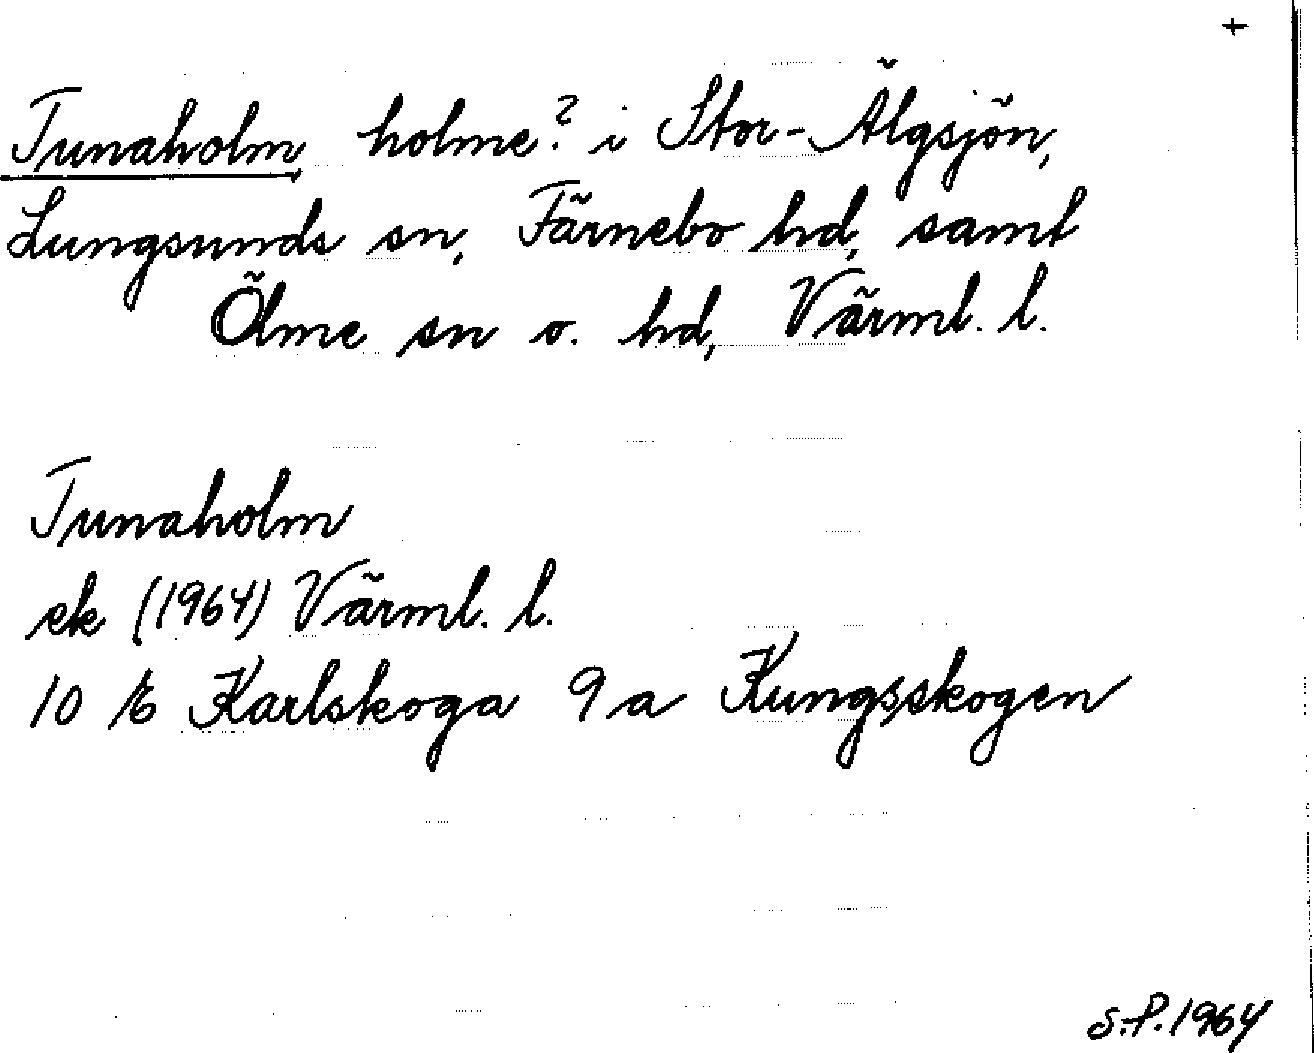 +
Tunaholm, holme? i Stor-Älgsjön,
Lungsunds sn, Färnebo hd, samt
Ölme sn o. hd, Värml. l.
Tunaholm
ek (1964) Värml. l.
10 E Karlskoga 9 a Kungsskogen
S.P. 1964